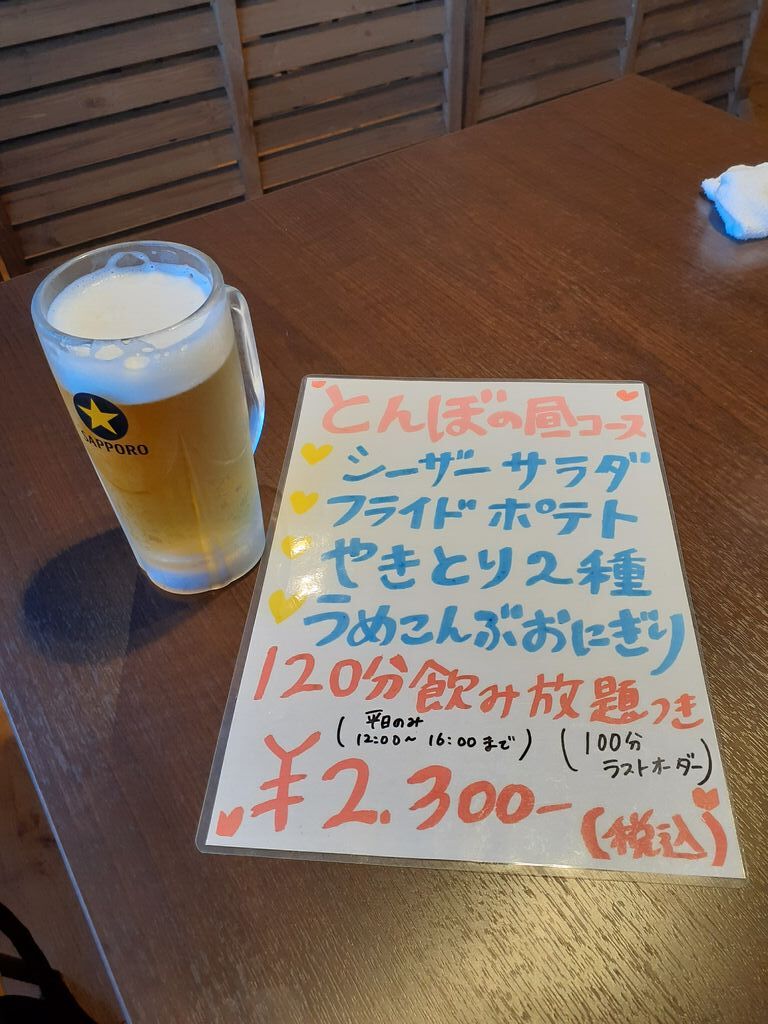 SAPPORO
とんぼの昼コース
シーザーサラダ
フライドポテト
やきとり2種
うめこんぶおにぎり
120分飲み放題つき
(平日のみ
12:00～16:00まで)
(100分
ラストオーダー)
¥2.300-
(税込)